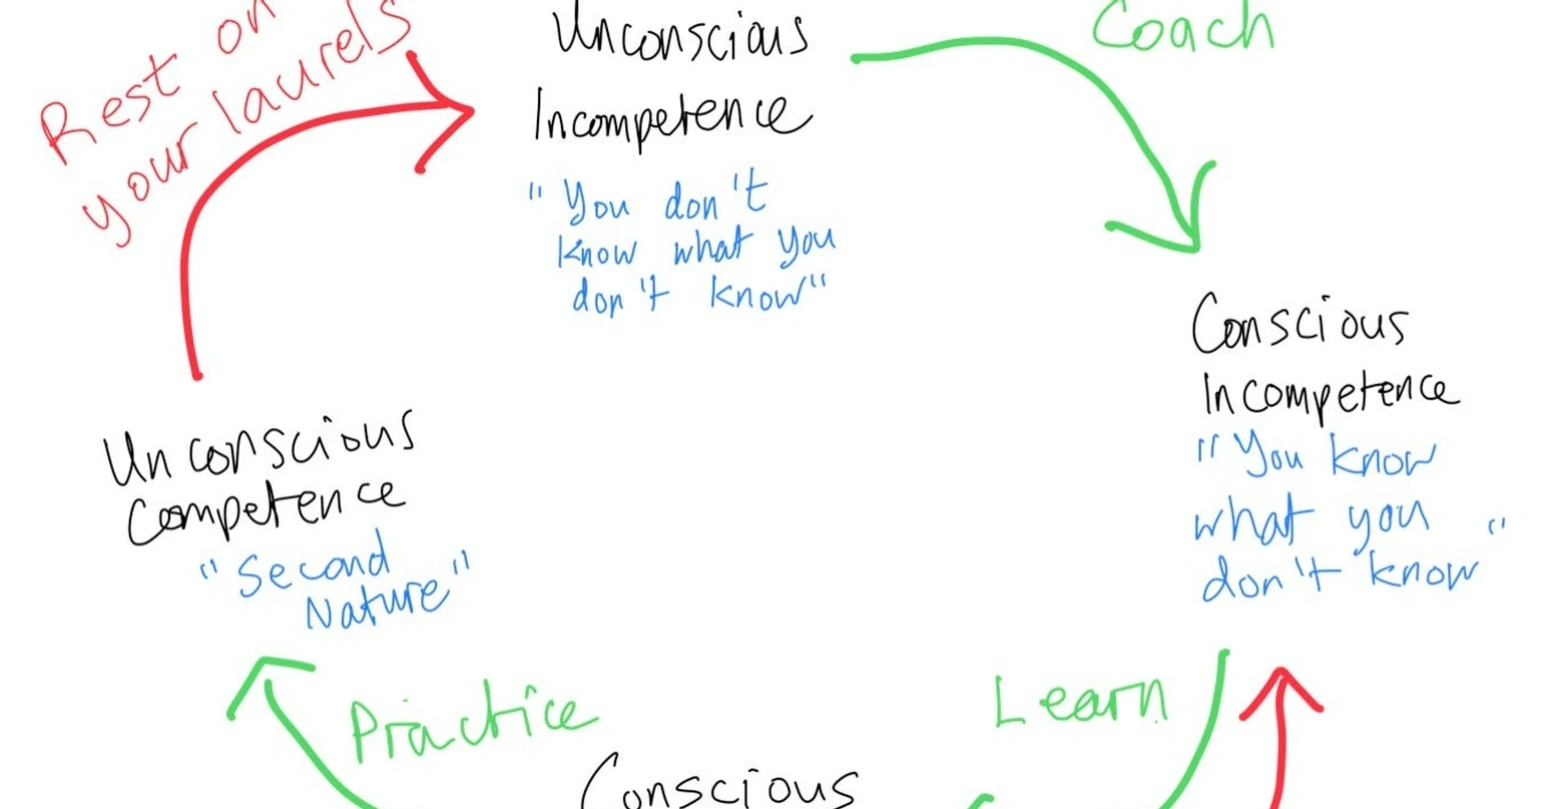 Rest on
your laurels
Unconscious
Incompetence
"You don't
know what you
don't know"
Coach
Conscious
Incompetence
"You know
what you
don't know"
Unconscious
Competence
"Second
Nature"
Practice
Learn
Conscious